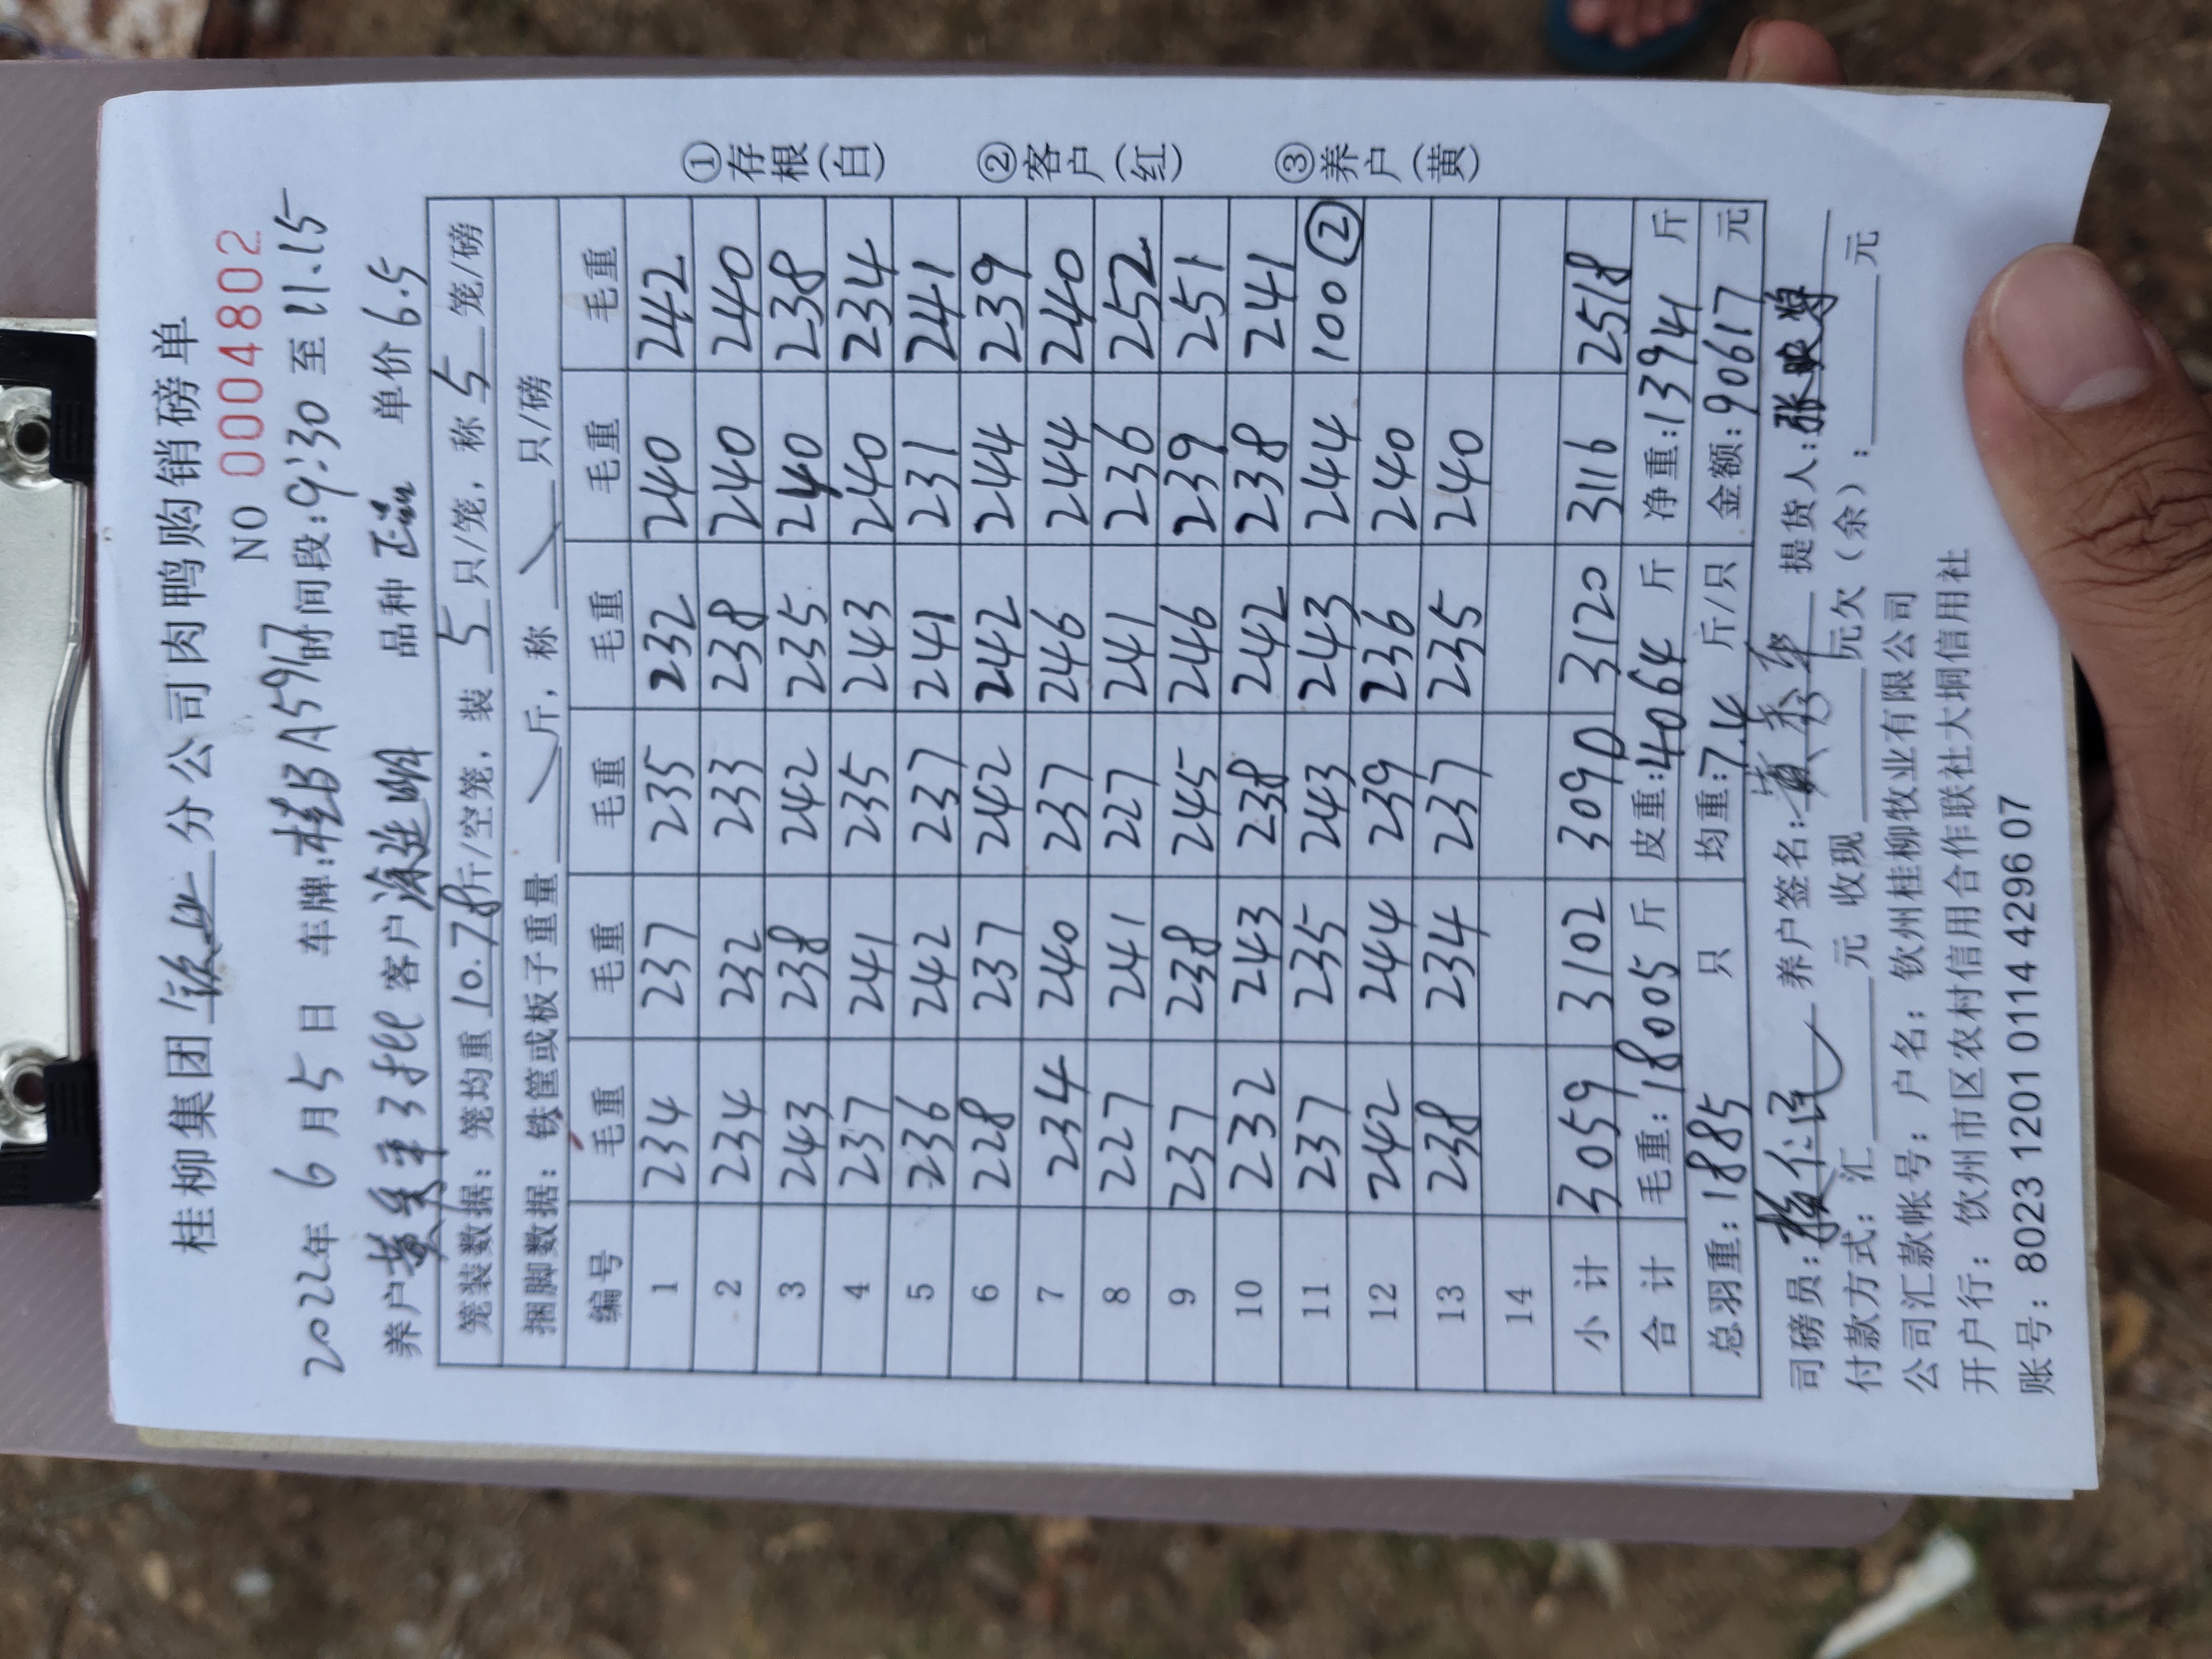 桂柳集团 钦北 分公司肉鸭购销磅单
NO 0004802
2022年 6 月 5 日 车牌:桂BA5917 时间段:9:30 至 11.15
养户 黄秀平 3批 客户 品种 正品 单价 6.5
笼装数据：笼均重 10.78 斤/空笼，装 5 只/笼，称 5 笼/磅
捆脚数据：铁筐或板子重量 斤，称 只/磅
编号 毛重 毛重 毛重 毛重 毛重 毛重
1 234 237 235 232 240 242
2 234 232 233 238 240 240
3 243 238 242 235 240 238
4 237 241 235 243 240 234
5 236 242 237 241 231 241
6 228 237 242 242 244 239
7 234 240 237 246 244 240
8 227 241 227 241 236 252
9 237 238 245 246 239 251
10 232 243 238 242 238 241
11 237 235 243 243 244 100②
12 242 244 239 236 240
13 238 234 237 235 240
14
小计 3059 3102 3090 3120 3116 2518
合计 毛重:18005 斤 皮重:4064 斤 净重:13941 斤
总羽重:1885 只 均重:7.4 斤/只 金额:90617 元
司磅员: 养户签名:黄秀平 提货人:
付款方式: 汇 元 收现 元欠(余): 元
公司汇款帐号: 户名: 钦州桂柳牧业有限公司
开户行: 钦州市区农村信用合作联社大垌信用社
账号: 8023 1201 0114 4296 07
①存根(白)
②客户(红)
③养户(黄)